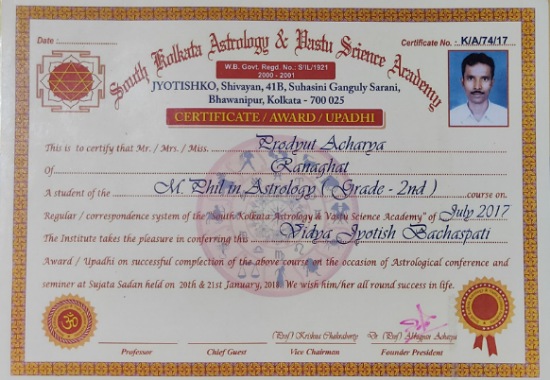 South Kolkata Astrology & Vastu Science Academy
Date :
Certificate No. - K/A/74/17
W.B. Govt. Regd. No.: S/IL/1921
2000 - 2001
JYOTISHKO, Shivayan, 41B, Suhasini Ganguly Sarani,
Bhawanipur, Kolkata - 700 025
CERTIFICATE / AWARD / UPADHI
This is to certify that Mr. / Mrs. / Miss. Prodyut Acharya
Of Ranaghat
A student of the M. Phil in Astrology ( Grade - 2nd ) course on.
Regular / correspondence system of the "South Kolkata Astrology & Vastu Science Academy" of July 2017
The Institute takes the pleasure in conferring this Vidya Jyotish Bachaspati
Award / Upadhi on successful complection of the above course on the occasion of Astrological conference and
seminer at Sujata Sadan held on 20th & 21st January, 2018. We wish him/her all round success in life.
(Prof) Krishna Chakraborty Dr (Prof) Acharya
Professor Chief Guest Vice Chairman Founder President
ॐ